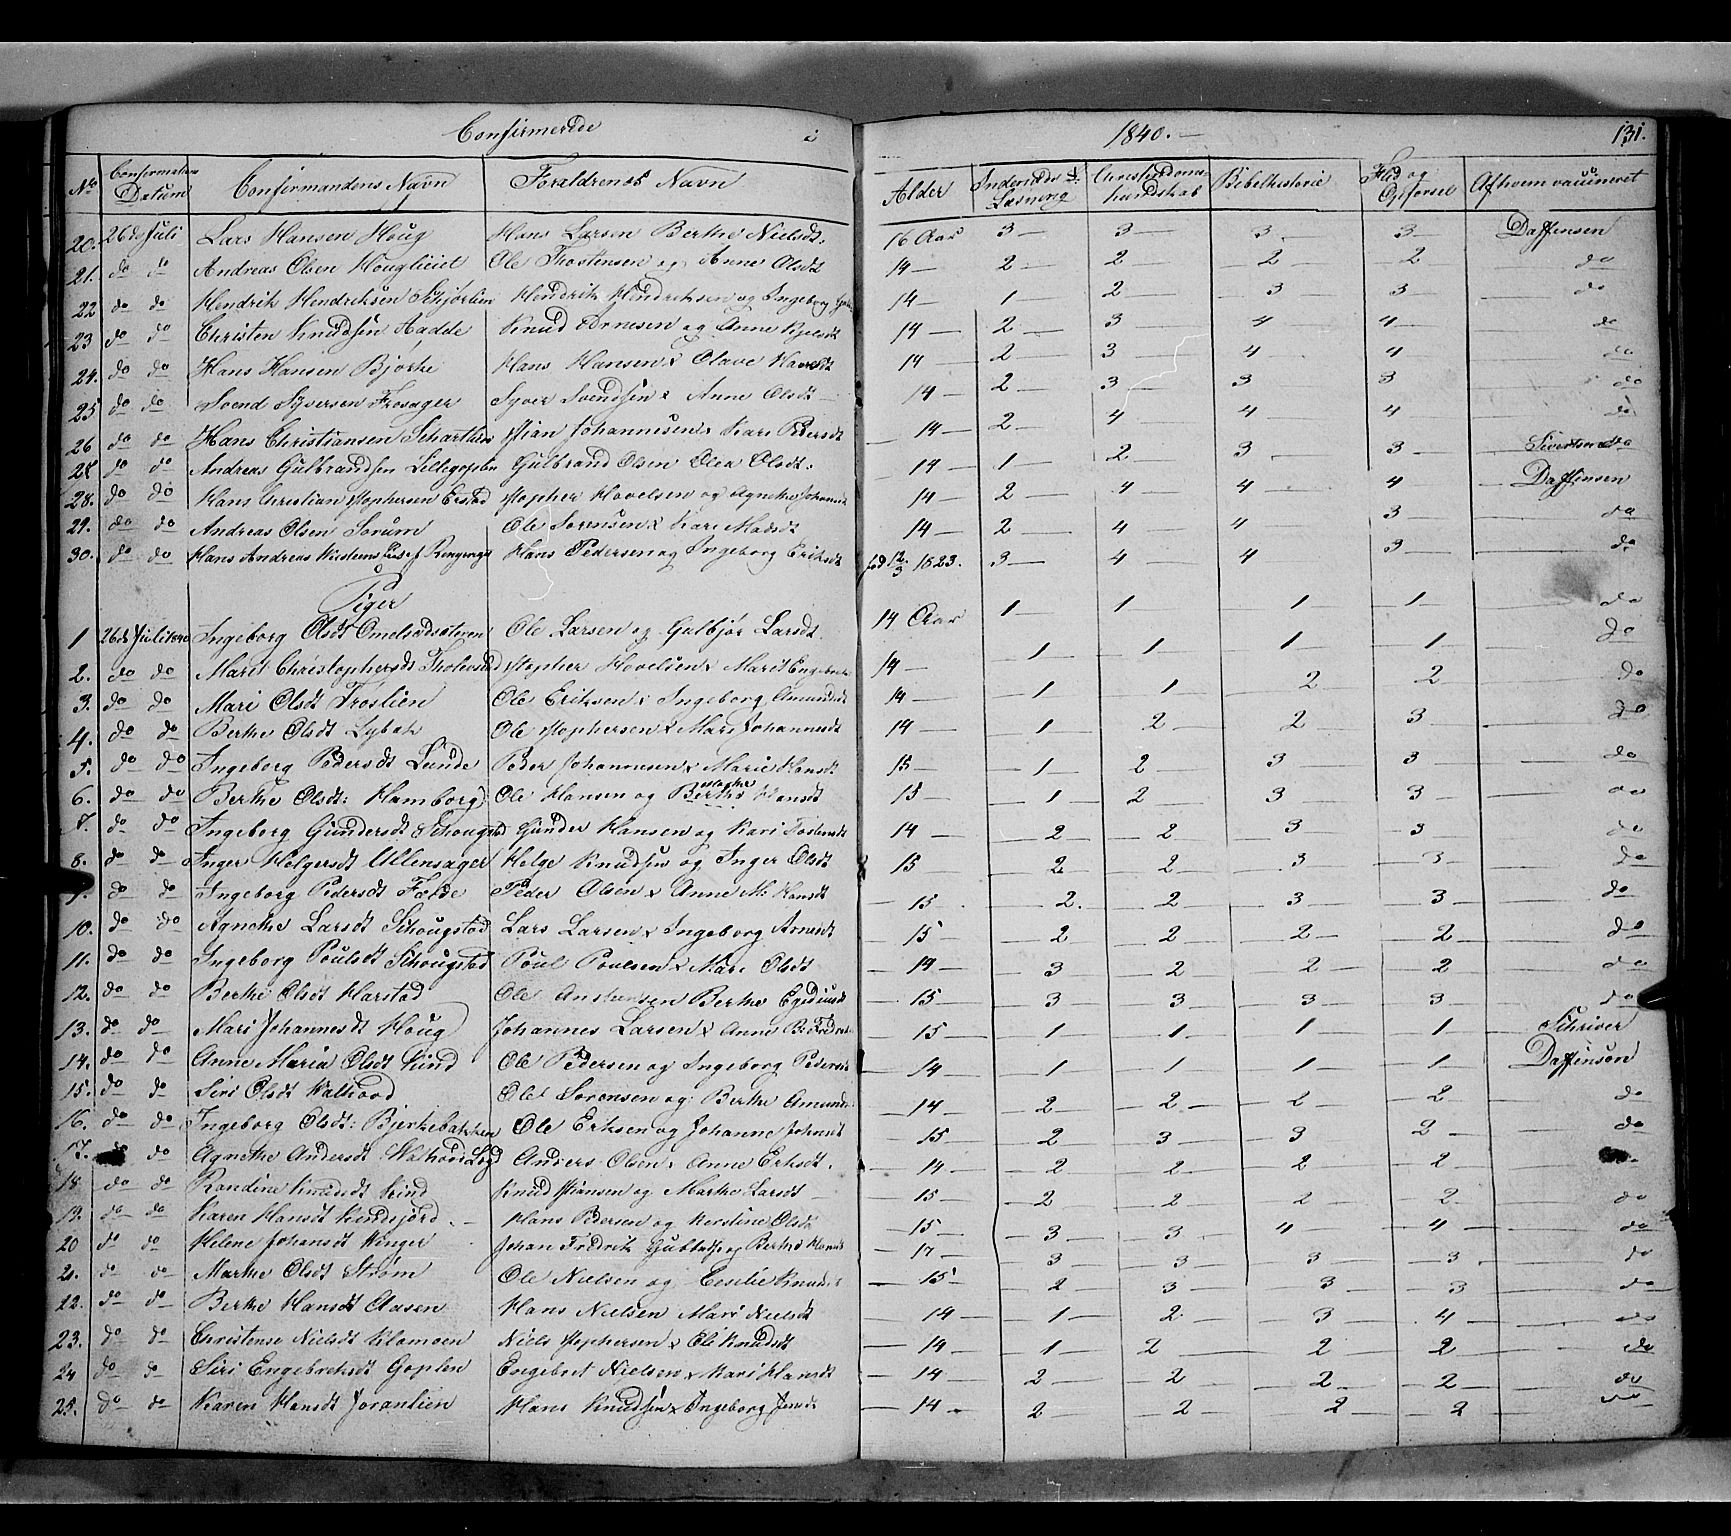 Confirmerede i 1840.— 131.
No Confirmations Datum Confirmandens Navn Foraldrenes Navn Alder Indenads Læsning Christendoms kundskab Bibelhistorie Flid og Opførsel Af hvem vaccineret
20. 26de Juli Lars Hansen Houg Hans Larsen Berthe Nielsdt. 16 Aar 3 3 3 3 Daffinson
21. do do Andreas Olsen Houglieiet Ole Trostensen og Anne Olsdt 14 2 2 2 2 do
22 do do Hendrik Hendriksen Schjørlien Hendrik Hendriksen og Ingeborg 14 1 2 3 3 do
23 do do Christen Knudsen Aadde Knud Arnesen og Anne Kjelsdt 14 2 3 4 4 do
24. do do Hans Hansen Bjørke Hans Hansen & Olave Havelsdt 14 2 3 4 4 do
25 do do Svend Syversen Frosager Syver Svendsen & Anne Olsdt 14 2 3 3 3 do
26 do do Hans Christiansen Schartlien Stian Johannesen & Kari Pedersdt 14 2 4 4 4 do
27 do do Andreas Gulbrandsen Lillegoplen Gulbrand Olsen Olea Olsdt. 14 1 2 3 3 Sivertsen
28. do do Hans Christian Stophersen Erstad Stopher Hovelsen og Agnethe Johannesdt 14 2 4 4 4 Daffinson
29. do do Andreas Olsen Sørum Ole Sørensen & Kari Madsdt 14 2 4 4 3 do
30. do do Hans Andreas Hans Pedersen og Ingeborg Eriksdt fød 12/3 1823. 3 4 4 3 do
Piger
1 26de Juli 1840 Ingeborg Olsdt Omelsadsæteren Ole Larsen og Gulbjør Larsdt. 14 Aar 1 1 1 1 do
2. do do Marit Christophersdt Stopher Hovelsen & Marit 14 1 1 1 1 do
3. do do Mari Olsdt Froslien Ole Eriksen & Ingeborg Amundsdt 14 1 1 2 2 do
4. do do Berthe Olsdt Lybæk Ole Stophersen & Mari Johannesdt 14 1 2 2 3 do
5. do do Ingeborg Pedersdt Lunde Peder Johannesen & Marie Hansdt 15 1 2 3 3 do
6. do do Berthe Olsdt: Hamborg Ole Hansen og Berthe Marthe Hansdt 15 1 2 3 3 do
7. do do Ingeborg Gundersdt Schougstad Gunder Hansen og Kari Tostensdt 14 2 2 3 3 do
8. do do Inger Helgersdt Ullensager Helge Knudsen og Inger Olsdt 15 2 2 3 3 do
9. do do Ingeborg Pedersdt Falde Peder Olsen & Anne M: Hansdt 15 2. 2 3 3 do
10. do do Agnethe Larsdt Schougstad Lars Larsen & Ingeborg Arnesdt 15 2 2 2 2 do
11. do do Ingeborg Poulsdt Schougstad Poul Poulsen & Mari Olsdt 14 3 2 2 2 do
12. do do Berthe Olsdt Harstad Ole Anstensen Berthe Egidiusdt 15 3 3 3 3 do
13. do do Mari Johannesdt Houg Johannes Larsen & Anne B: Fredriksdt 15 1 1 1 1 Schriver
14. do do Anne Maria Olsdt Kind Ole Pedersen og Ingeborg Pedersdt 14 1 1 1 1 Daffinson
15. do do Siri Olsdt Walhovd Ole Sørensen og Berthe Amunds 14 2 2 2 2 do
16. do do Ingeborg Olsdt: Bjerkebakken Ole Eriksen og Johanne Johnsdt 15 2 3 3 2 do
17. do do Agnethe Andersdt Walhovd Anders Olsen & Anne Eriksdt. 14 2 2 2 2 do
18 do do Randine Knudsdt Kind Knud Stiansen og Marthe Larsdt 15 2 2 2 2 do
19. do do Karen Hansdt Kindsjord Hans Pedersen og Kirstine Olsdt 15 3 3 4 4 do
20 do do Helene Johansdt Winger Johan Fredrik og Berthe Hansdt 17 3 3 3 3 do
2. do do Marthe Olsdt Strøm Ole Nielsen og Cesilie Knuds 15 2 3 3 3 do
22. do do Berthe Hansdt Aasen Hans Nielsen Mari Nielsdt 14 1 2 3 4 do
23. do do Christense Nielsdt Klomoen Niels Stophersen & Eli Knudsdt 14 1 2 2 2 do
24 do do Siri Engebretsdt Goplen Engebret Nielsen & Mari Hansdt 14 2 2 2 2 do
25. do do Karen Hansdt Joranlien Hans Knudsen & Ingeborg Jensdt 14 2 2 2 2 do